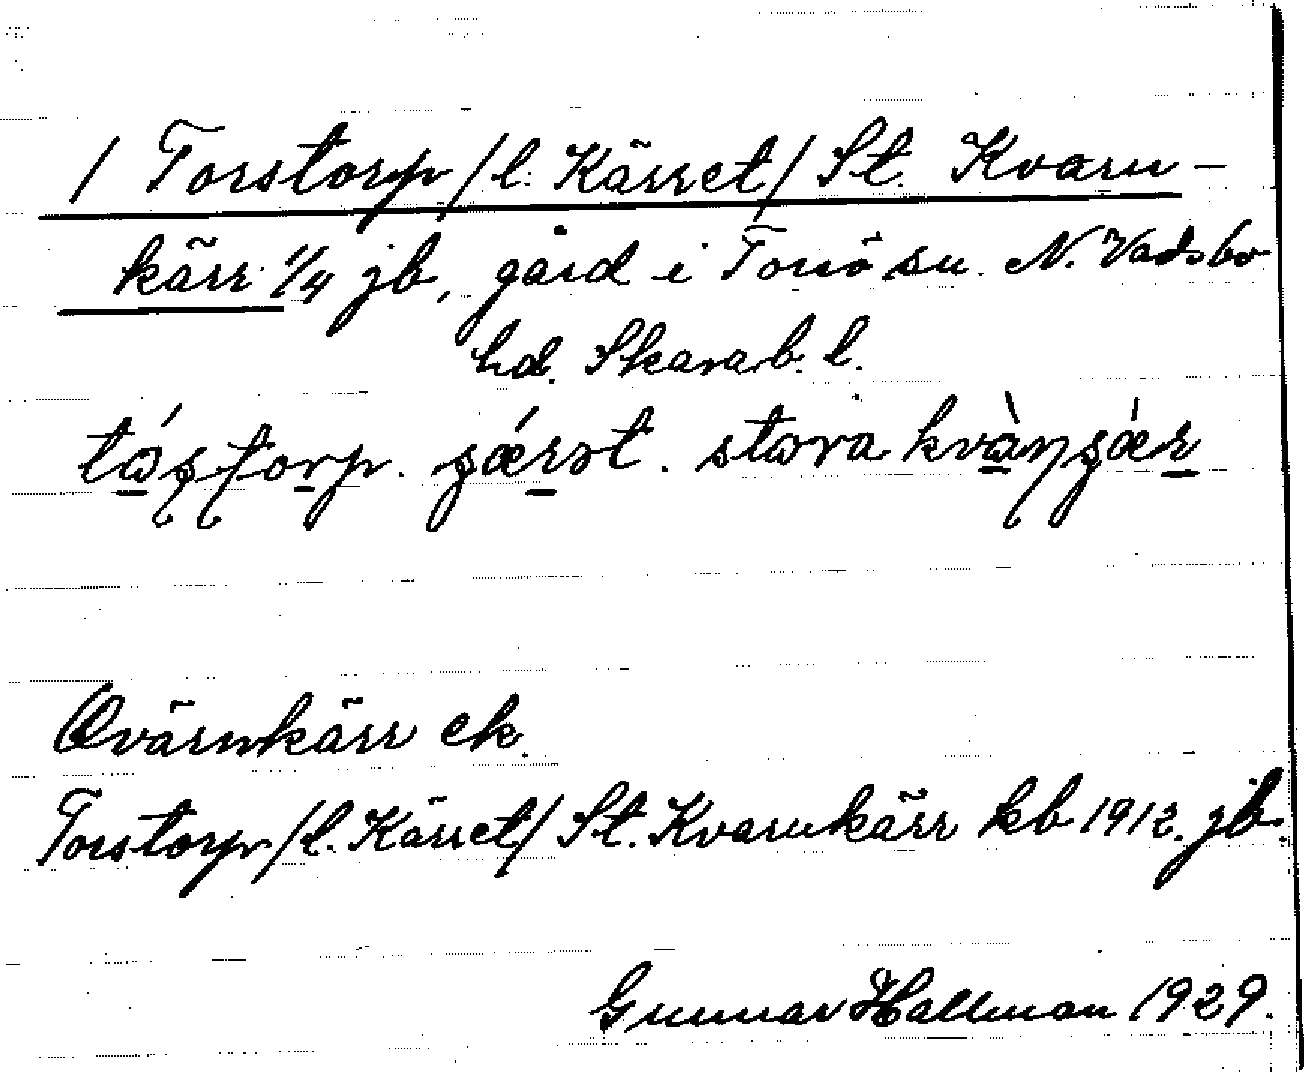 / Torstorp /l. Kärret/ St. Kvarn-
kärr 1/4 jb, gård i Torsö sn. N. Vadsbo
hd. Skarab. l.
stora
Qvärnkärr ek.
Torstorp /l. Kärret/ St. Kvarnkärr kb 1912. jb.
Gunnar Hallman 1929.